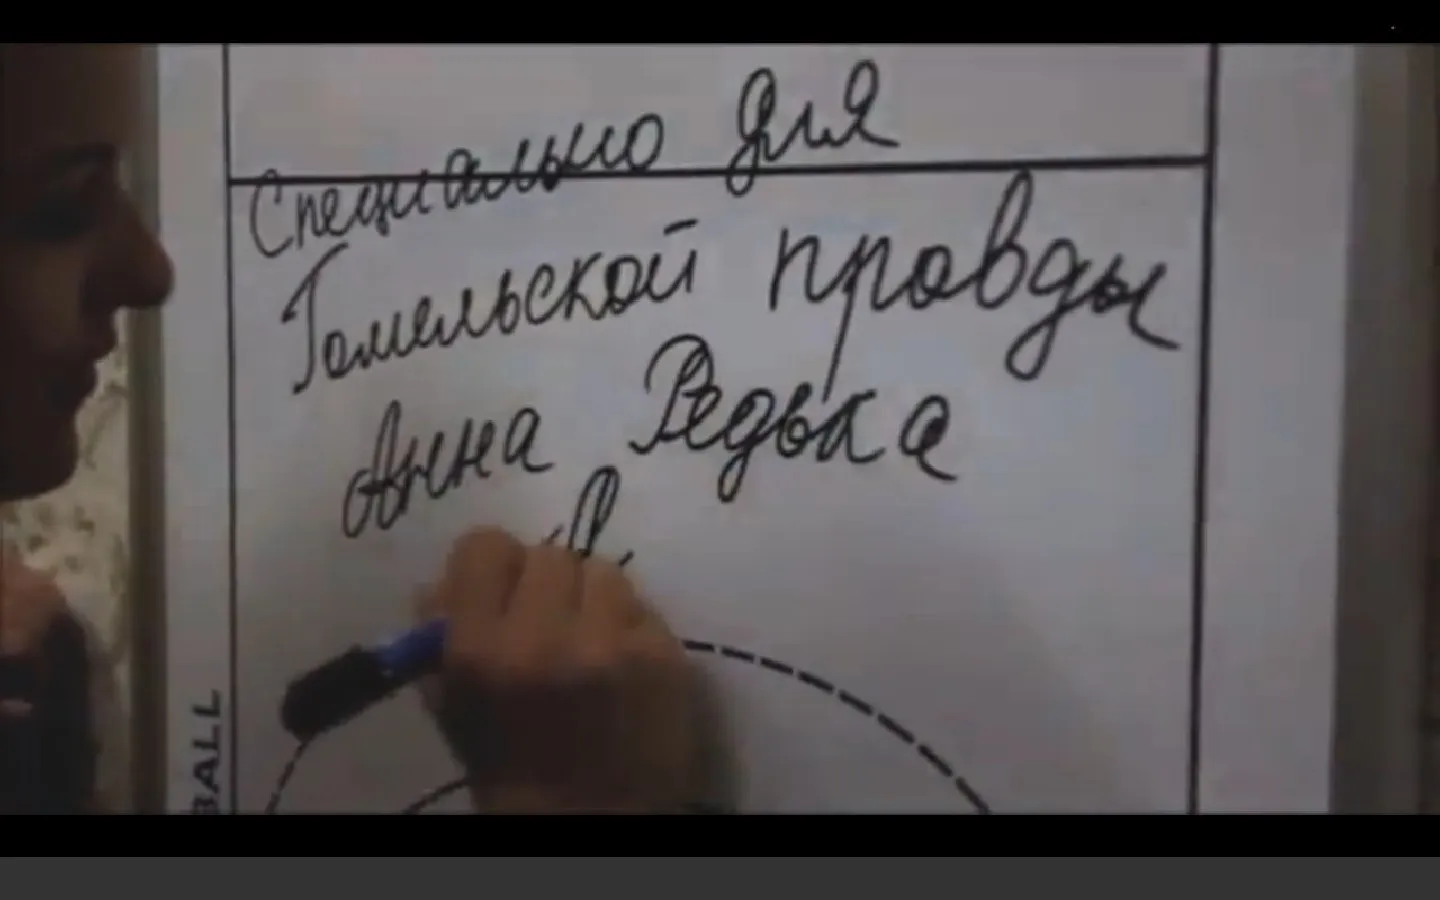 Специально для
Гомельской правды
Анна Редька
BALL